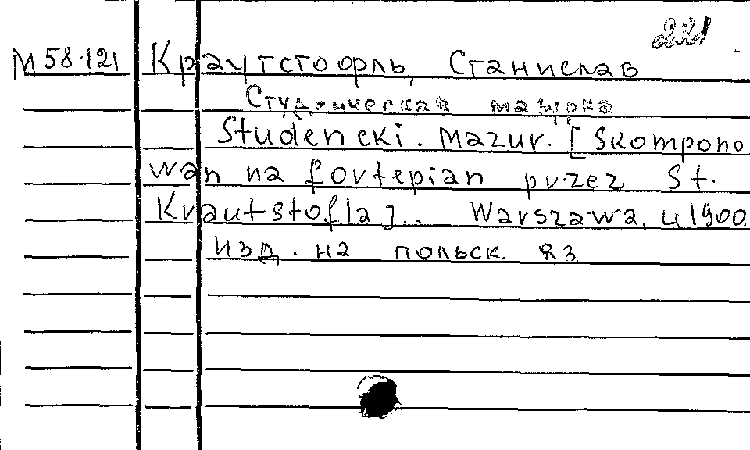 М58.121 Краутстофль, Станислав
Студенческая мазурка
Studencki. Mazur. [Skompono
wan na fortepian przez St.
Krautstofla]. Warszawa, 1900
Изд. на польск. яз